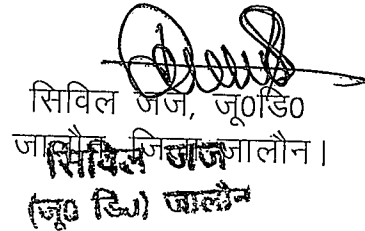 सिविल जज, जू0डि0
जालौन जिला जालौन।
सिविल जज
(जू0 डि0) जालौन